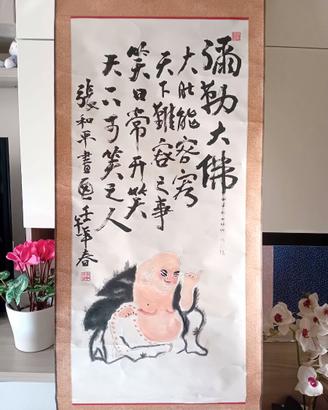 彌勒大佛
大肚能容容
天下難容之事
笑口常開笑
天下可笑之人
張和平書畫壬午年春